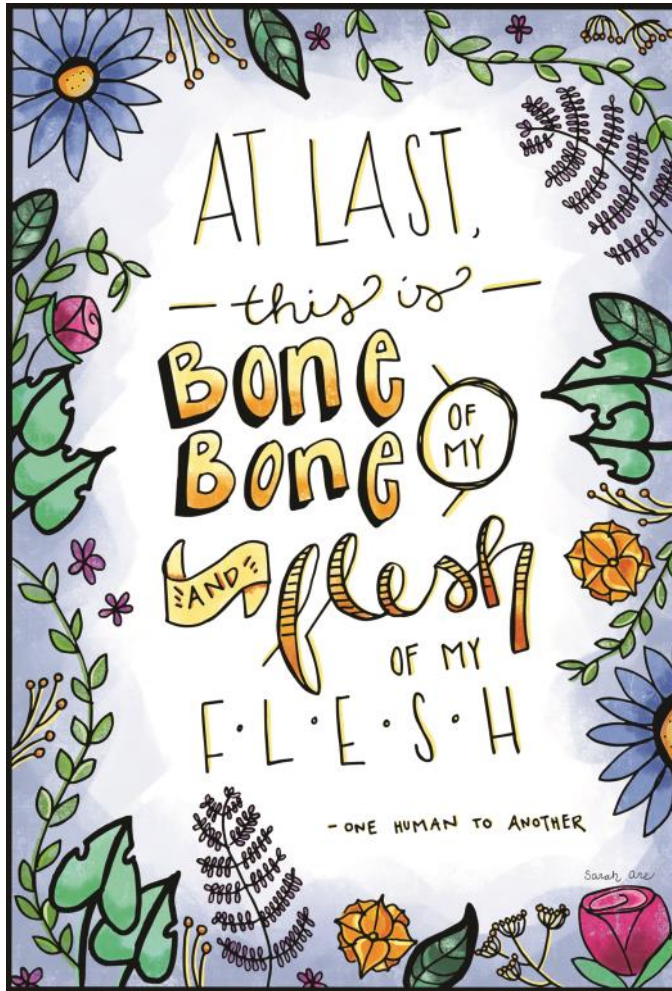 AT LAST,
this is
Bone OF
Bone MY
AND flesh
OF MY
F·L·E·S·H
- ONE HUMAN TO ANOTHER
Sarah Are